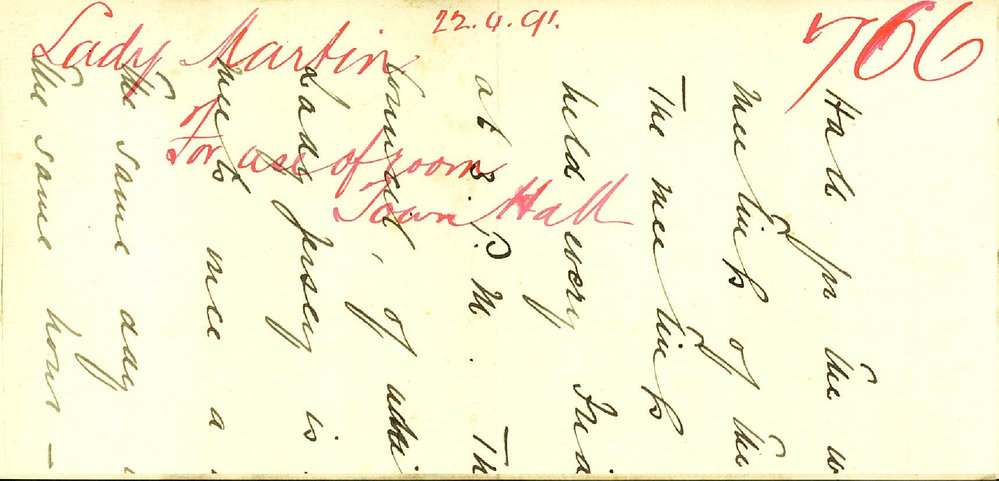 Lady Martin
22.4.91.
766
For use of room
Town Hall
Hall for the
meetings of the
The meetings
held every
at 8 P.M. Th
Council, of
Lady Jersey is
meets once a
the same day
the same hour –